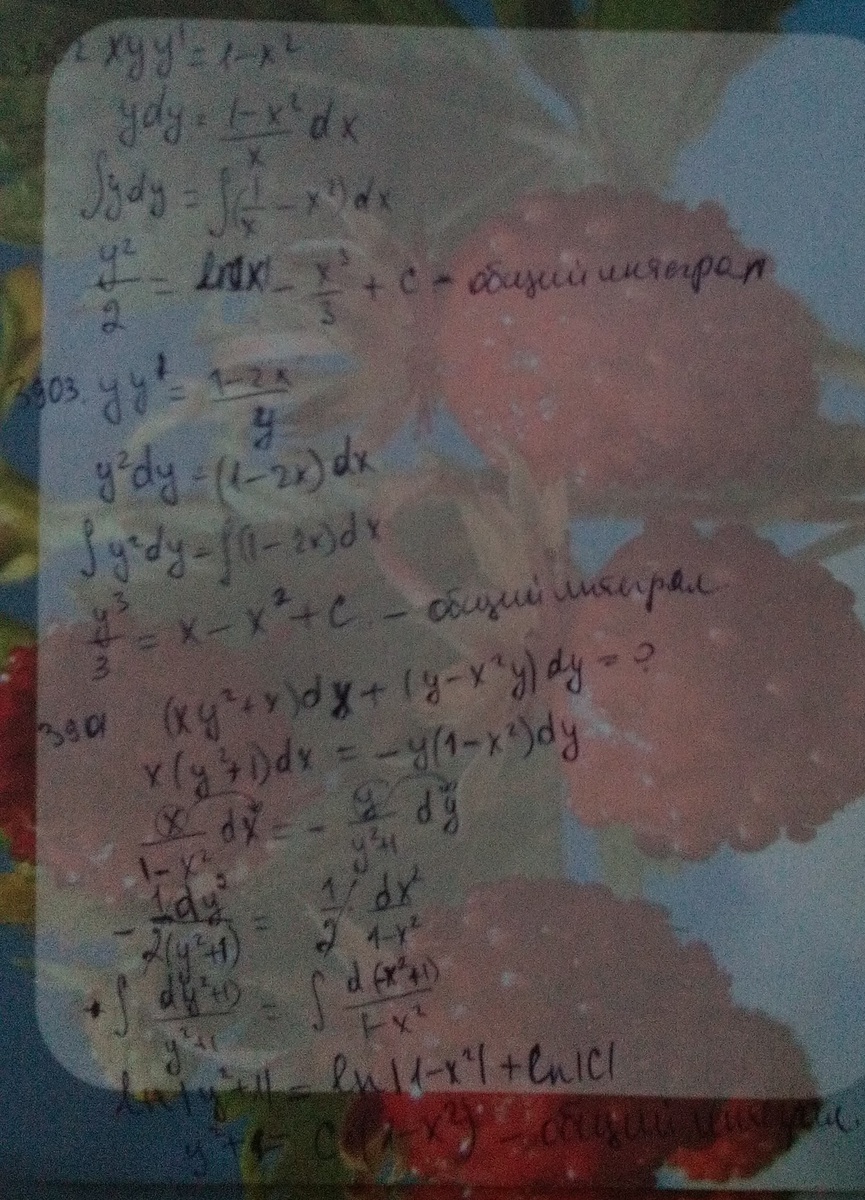 xyy' = 1-x²
ydy = \frac{1-x²}{x} dx
∫ydy = ∫(\frac{1}{x} - x²)dx
\frac{y²}{2} = ln|x| - \frac{x³}{3} + C - общий интеграл
3903. yy' = \frac{1-2x}{y}
y²dy = (1-2x)dx
∫y²dy = ∫(1-2x)dx
\frac{y³}{3} = x - x² + C. - общий интеграл
3901 (xy²+x)dx + (y-x²y)dy = ?
x(y²+1)dx = -y(1-x²)dy
\frac{x}{1-x²} dx = - \frac{y}{y²+1} dy
- \frac{1dy²}{2(y²+1)} = \frac{1}{2} \frac{dx²}{1-x²}
∫ \frac{d(y²+1)}{y²+1} = ∫ \frac{d(-x²+1)}{1-x²}
ln|y²+1| = ln|1-x²| + ln|C|
y²+1 = C(1-x²) - общий интеграл.